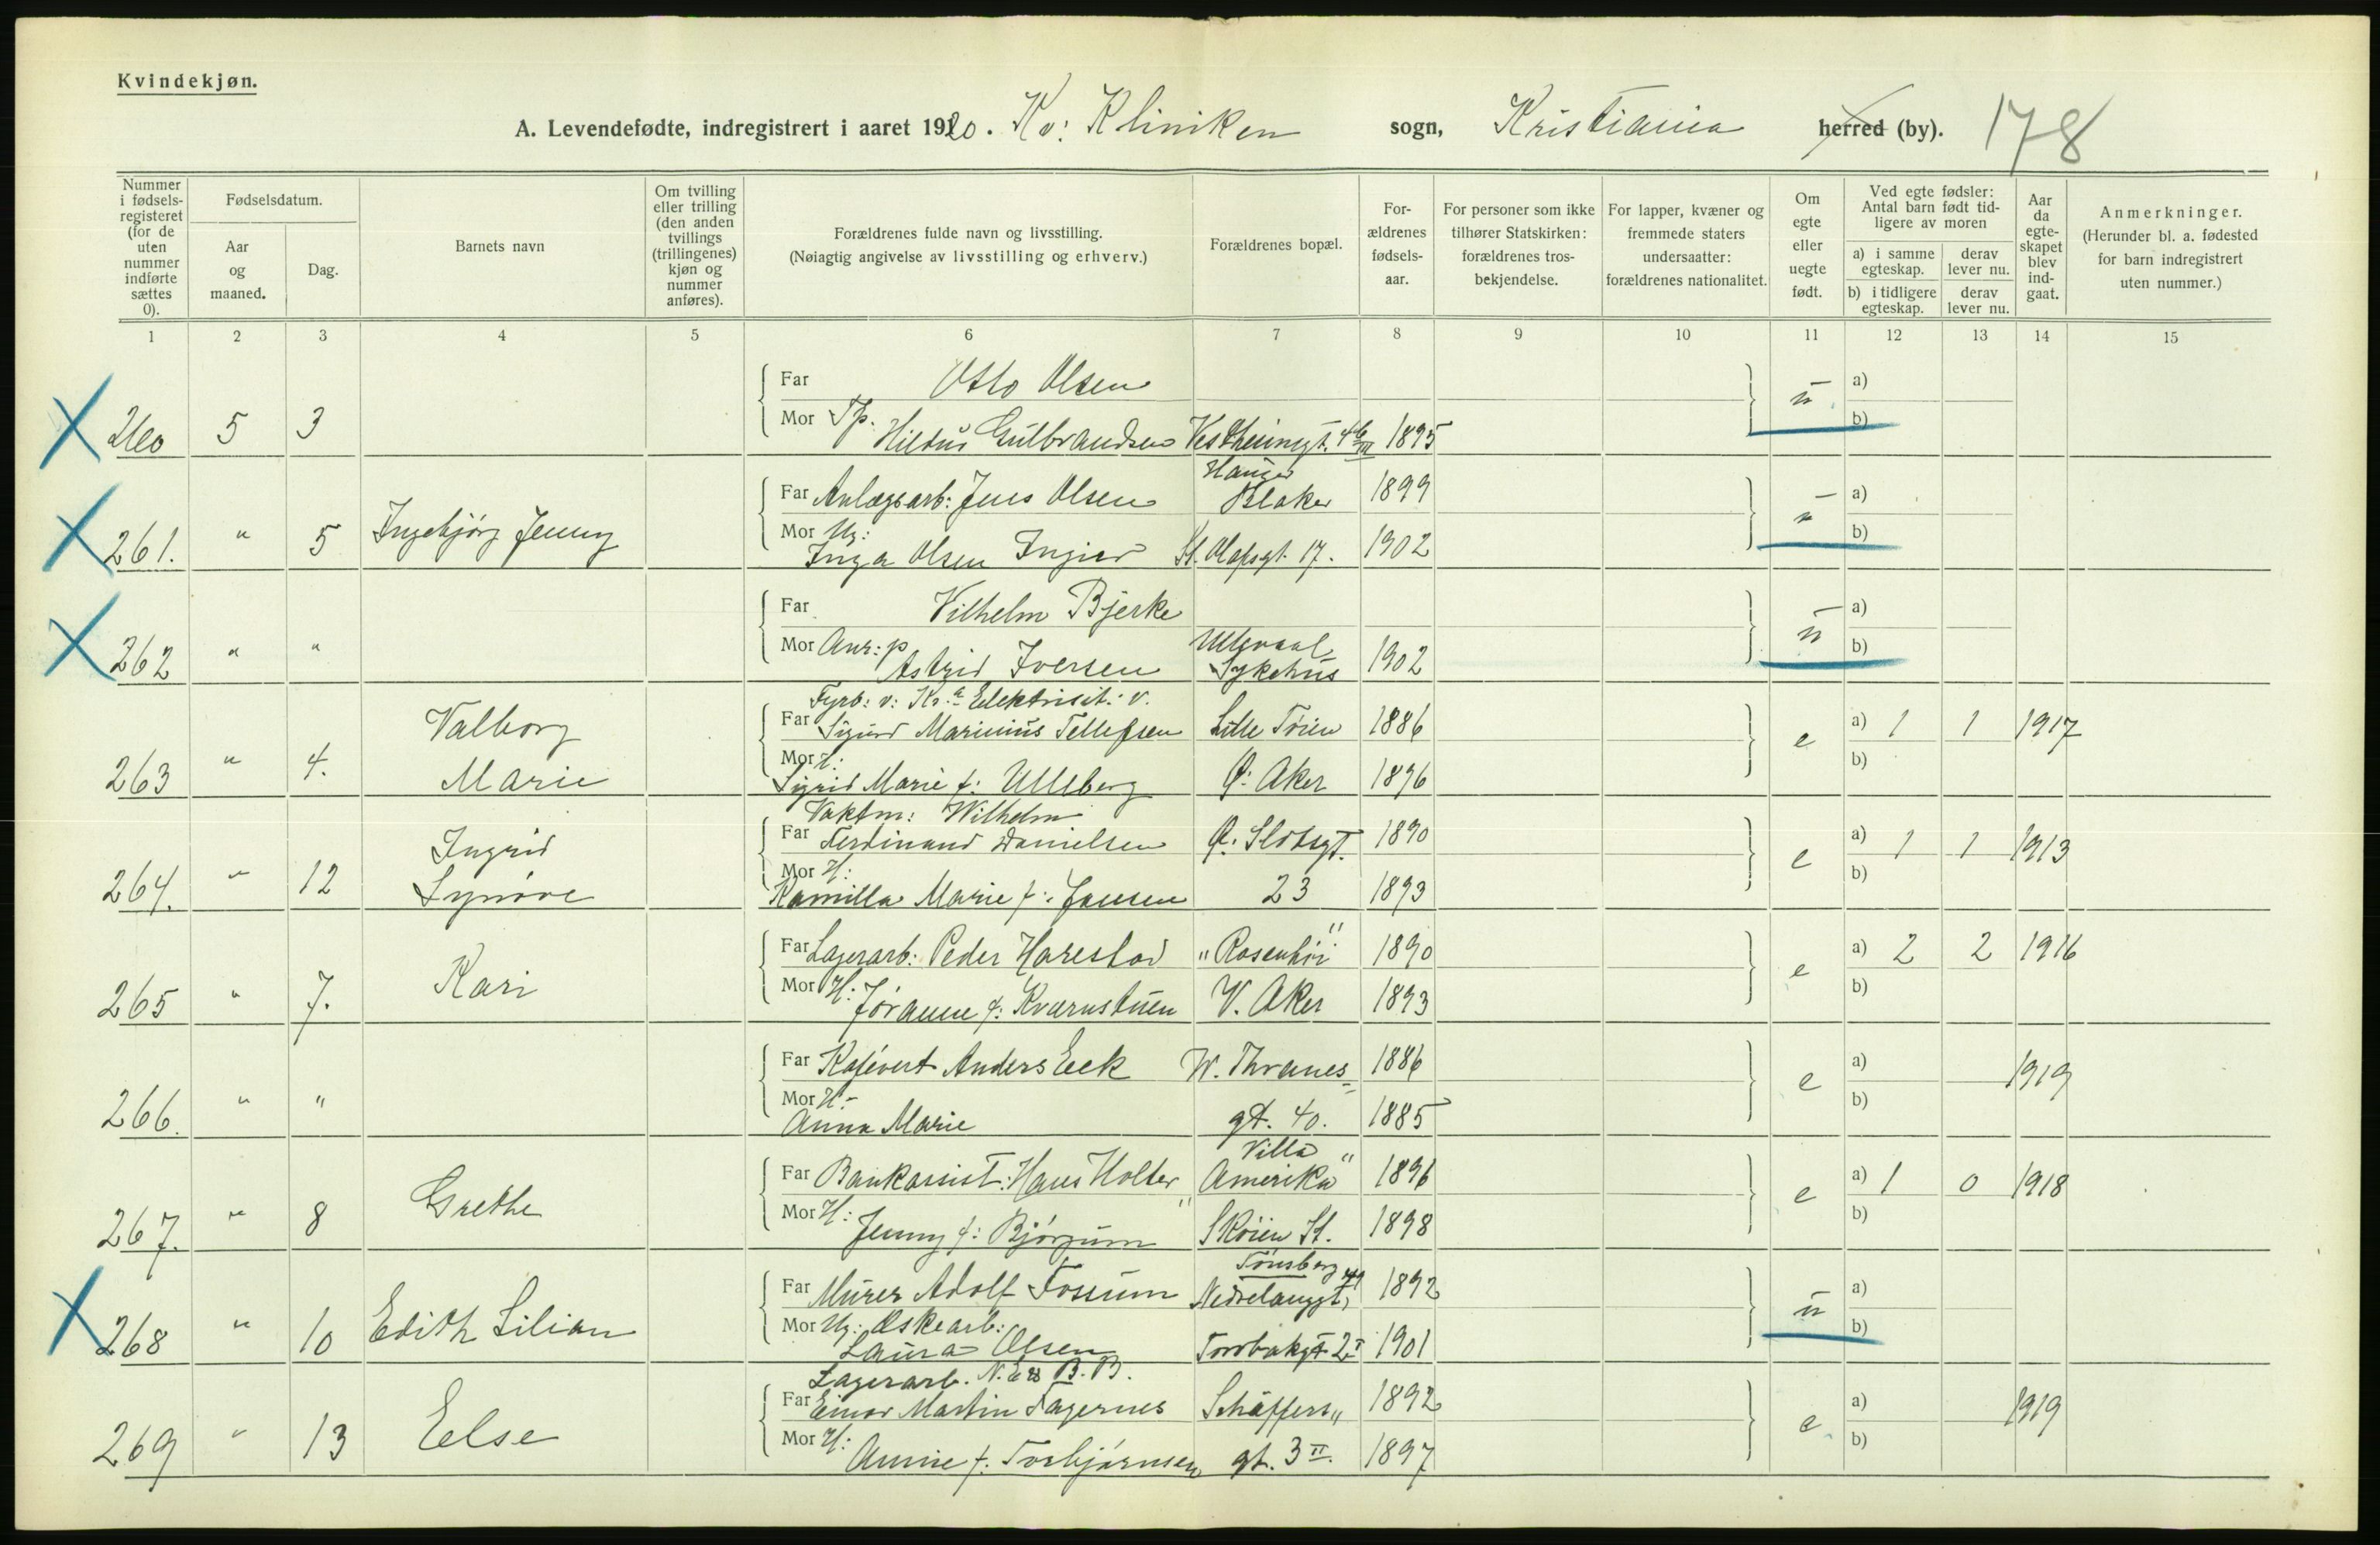 Kvindekjøn.
A. Levendefødte, indregistrert i aaret 1920. Kv: Kliniken sogn, Kristiania herred (by). 178
Nummer i fødsels-registeret (for de uten nummer indførte sættes 0).
Fødselsdatum.
Aar og maaned.
Dag.
Barnets navn
Om tvilling eller trilling (den anden tvillings (trillingenes) kjøn og nummer anføres).
Forældrenes fulde navn og livsstilling.
(Nøiagtig angivelse av livsstilling og erhverv.)
Forældrenes bopæl.
For-ældrenes fødsels-aar.
For personer som ikke tilhører Statskirken: forældrenes tros-bekjendelse.
For lapper, kvæner og fremmede staters undersaatter: forældrenes nationalitet.
Om egte eller uegte født.
Ved egte fødsler: Antal barn født tid-ligere av moren
a) i samme egteskap.
derav lever nu.
b) i tidligere egteskap.
derav lever nu.
Aar da egte-skapet blev ind-gaat.
Anmerkninger.
(Herunder bl. a. fødested for barn indregistrert uten nummer.)
1 2 3 4 5 6 7 8 9 10 11 12 13 14 15
Far Otto Olsen a)
260 5 3 Mor Tp. Hildur Gulbrandsen Vestheimgt. 4b III 1895 u b)
Hauger
Far Anlægsarb: Jens Olsen Blaker 1899 a)
261. " 5 Ingebjørg Jenny Mor Ug: Inga Olsen Ingier St. Olafsgt. 17. 1902 u b)
Far Vilhelm Bjerke a)
262 " " Mor Anr: p Astrid Iversen Ullevaal Sykehus 1902 u b)
Fyrb: v: Kr.a Elektrisit: v.
Valborg Far Sigurd Marinius Tellefsen Lille Tøien 1886 a) 1 1 1917
263 " 4. Marie Mor H: Sigrid Marie f: Ullberg Ø: Aker 1896 e b)
Vaktm: Wilhelm
Ingrid Far Ferdinand Danielsen Ø: Slotsgt. 1890 a) 1 1 1913
264. " 12 Synøve Mor H: Kamilla Marie f: Jansen 23 1893 e b)
Far Lagerarb: Peder Harestad "Rosenhøi" 1890 a) 2 2 1916
265 " 7. Kari Mor H: Jøranne f: Kværnstuen V. Aker 1893 e b)
Far Kafévert Anders Eek W. Thranes- 1886 a) 1919
266. " " Mor H:- Anna Marie gt. 40. 1885 e b)
Villa
Far Bankassist: Hans Holter "Amerika" 1896 a) 1 0 1918
267. " 8 Grethe Mor H: Jenny f: Bjørgum Skøien St. 1898 e b)
Tønsberg
Far Murer Adolf Fossum Nedrelanggt. 41 1892 a)
268 " 10 Edith Lilian Mor Ug: Æskearb: Laura Olsen Torvbakgt 2 I 1901 u b)
Lagerarb. N. E & B. B.
Far Einar Martin Fagernes Schäffers" 1892 a) 1919
269 " 13 Else Mor H: Annie f. Torbjørnsen gt. 3 II. 1897 e b)